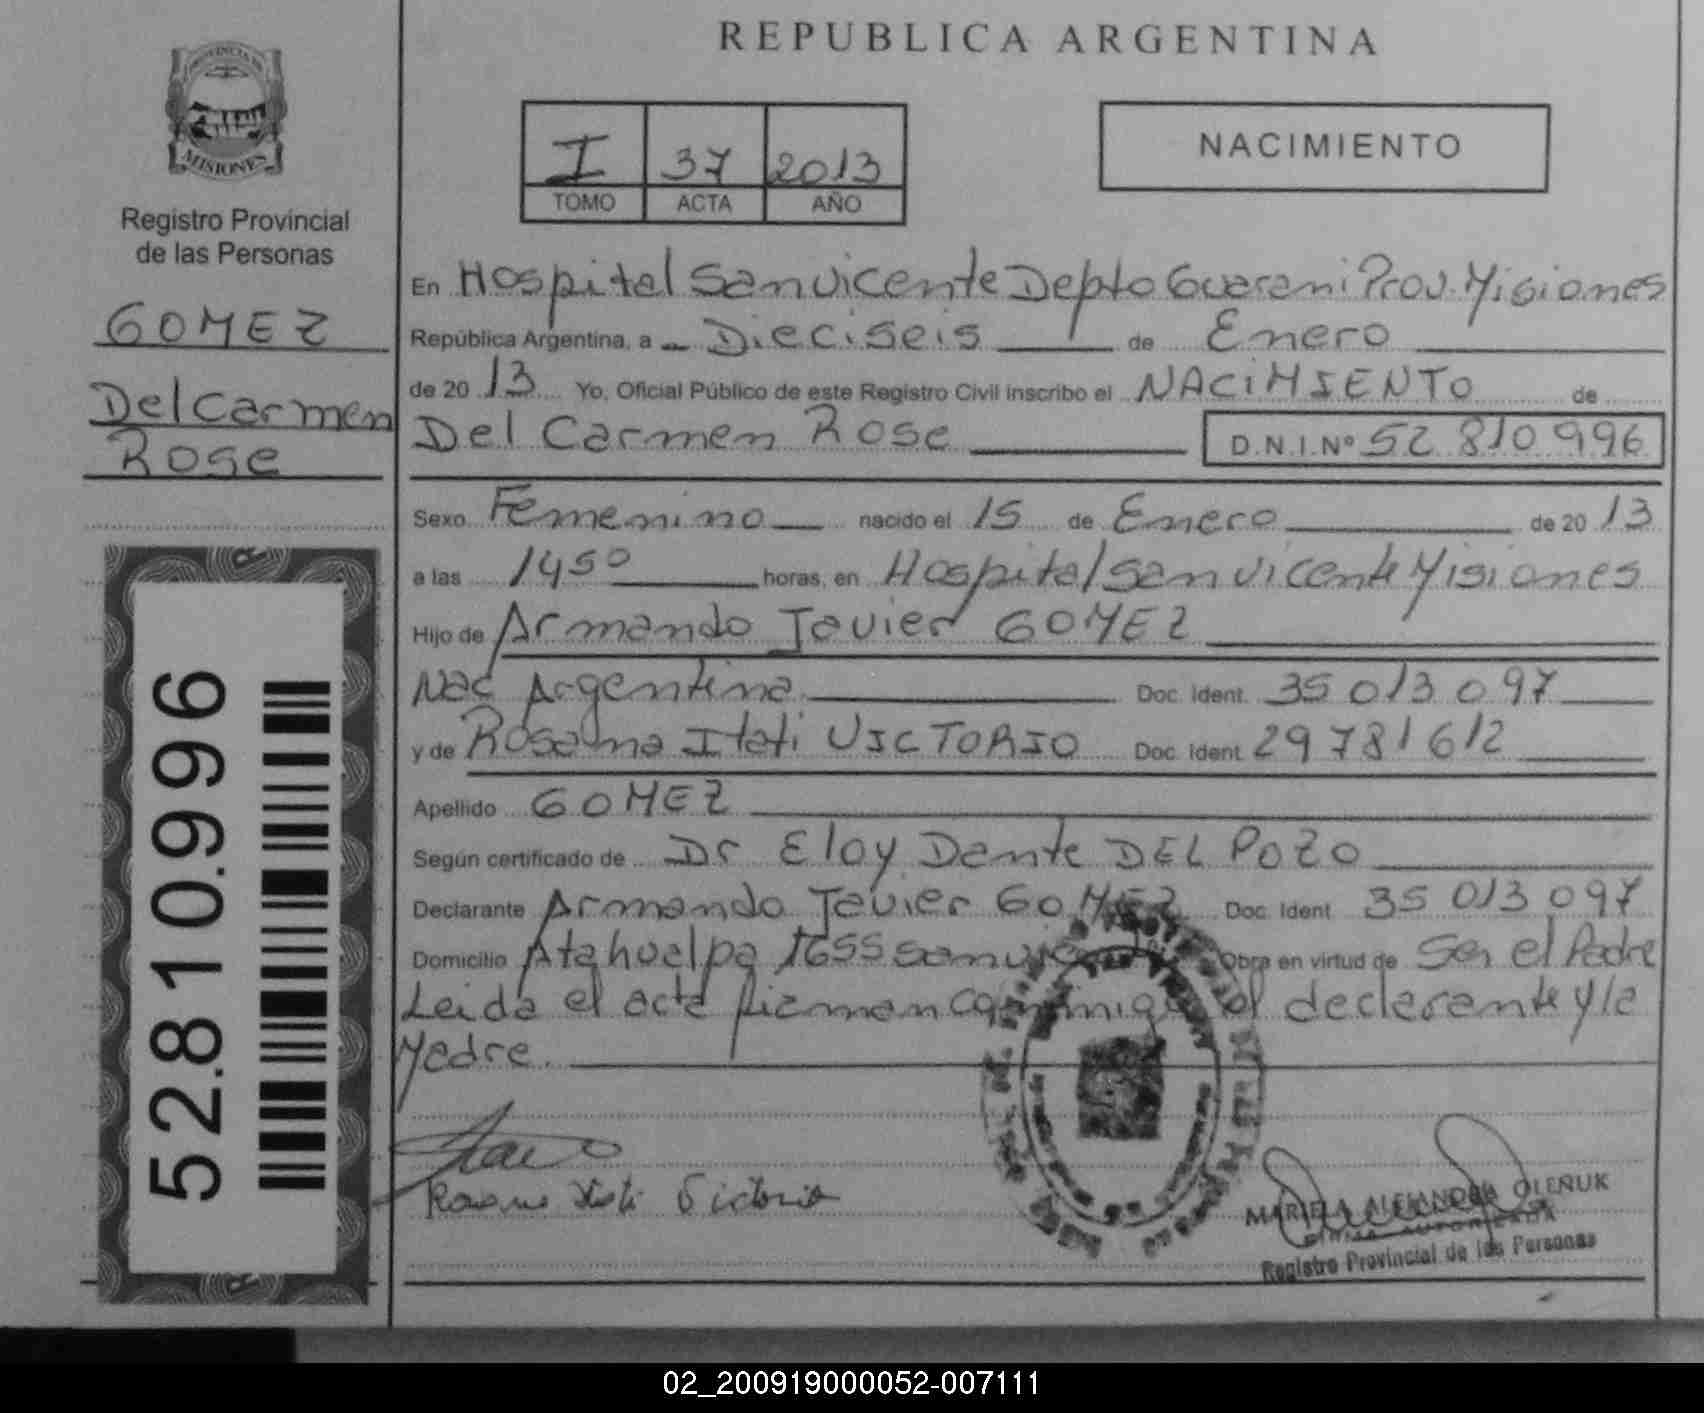 REPUBLICA ARGENTINA
PROVINCIA DE
MISIONES
Registro Provincial
de las Personas
GOMEZ
Del Carmen
Rose
52.810.996
I 37 2013
TOMO ACTA AÑO
NACIMIENTO
En Hospital San vicente Depto Guarani Prov. Misiones
República Argentina, a Dieciseis de Enero
de 20 13 Yo, Oficial Público de este Registro Civil inscribo el NACIMIENTO de
Del Carmen Rose D.N.I.Nº 52 810 996
Sexo Femenino nacido el 15 de Enero de 20 13
a las 1450 horas, en Hospital San vicente Misiones
Hijo de Armando Javier GOMEZ
Nac Argentina Doc. Ident. 35 013 097
y de Rosana Itati VICTORIO Doc. Ident. 29 781 612
Apellido GOMEZ
Según certificado de Dr Eloy Dante DEL POZO
Declarante Armando Javier GOMEZ Doc. Ident 35 013 097
Domicilio Atahualpa 1655 San Obra en virtud de Ser el Padre
Leida el acta firman conmigo el declarante y la
Madre.
MARIELA ALEJANDRA OLEÑUK
FIRMA AUTORIZADA
Registro Provincial de las Personas
02_200919000052-007111